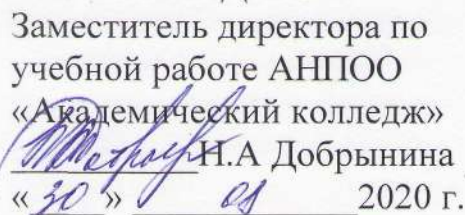 Заместитель директора по
учебной работе АНПОО
«Академический колледж»
Н.А Добрынина
« 30 » 2020 г.